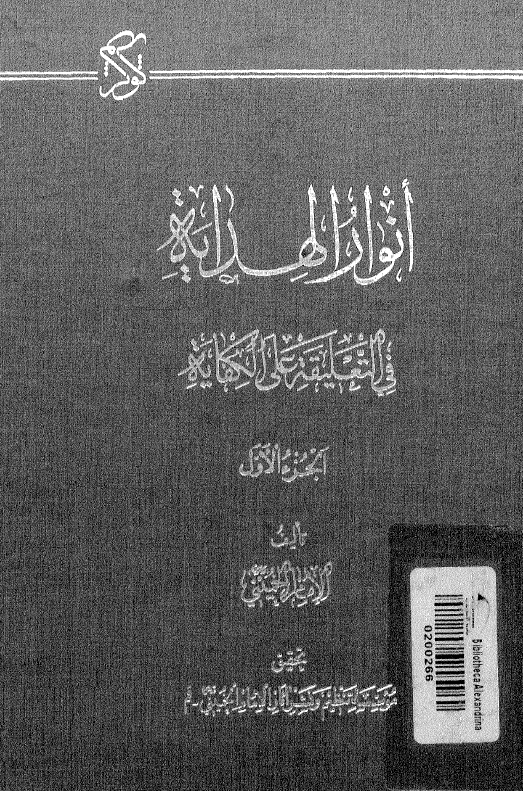 أنوار الهداية
في التعليقة على الكفاية
الجزء الأول
تأليف
الإمام الخميني
تحقيق
مؤسسة تنظيم ونشر آثار الإمام الخميني
Bibliotheca Alexandrina
0200266